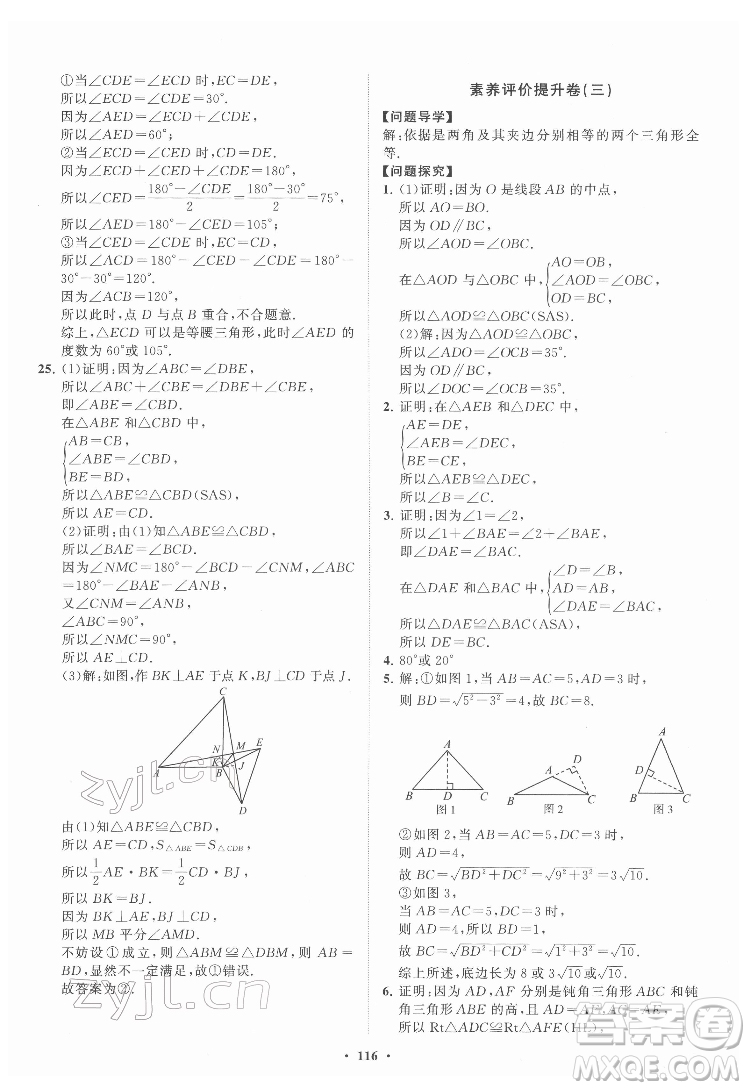 ①当∠CDE=∠ECD 时,EC=DE,
所以∠ECD=∠CDE=30°.
因为∠AED=∠ECD+∠CDE,
所以∠AED=60°;
②当∠ECD=∠CED 时,CD=DE,
因为∠ECD+∠CED+∠CDE=180°,
所以∠CED=(180°-∠CDE)/2=(180°-30°)/2=75°,
所以∠AED=180°-∠CED=105°;
③当∠CED=∠CDE 时,EC=CD,
所以∠ACD=180°-∠CED-∠CDE=180°-
30°-30°=120°,
因为∠ACB=120°,
所以此时,点 D 与点 B 重合,不合题意.
综上,△ECD 可以是等腰三角形,此时∠AED 的
度数为 60°或 105°.
25. (1)证明:因为∠ABC=∠DBE,
所以∠ABC+∠CBE=∠DBE+∠CBE,
即∠ABE=∠CBD.
在△ABE 和△CBD 中,
{AB=CB,
∠ABE=∠CBD,
BE=BD,
所以△ABE≌△CBD(SAS),
所以 AE=CD.
(2)证明:由(1)知△ABE≌△CBD,
所以∠BAE=∠BCD.
因为∠NMC=180°-∠BCD-∠CNM,∠ABC
=180°-∠BAE-∠ANB,
又∠CNM=∠ANB,
∠ABC=90°,
所以∠NMC=90°,
所以 AE⊥CD.
(3)解:如图,作 BK⊥AE 于点 K,BJ⊥CD 于点 J.
C
N M E
A K B J
D
由(1)知△ABE≌△CBD,
所以 AE=CD,S△ABE=S△CDB,
所以 1/2 AE·BK=1/2 CD·BJ,
所以 BK=BJ.
所以 MB 平分∠AMD.
不妨设①成立,则△ABM≌△DBM,则 AB=
BD,显然不可能,故①错误.
故答案为②.
素养评价提升卷(三)
【问题导学】
解:依据是两角及其夹边分别相等的两个三角形全
等.
【问题探究】
1. (1)证明:因为 O 是线段 AB 的中点,
所以 AO=BO.
因为 OD∥BC,
所以∠AOD=∠OBC.
在△AOD 与△OBC 中,{AO=OB,
∠AOD=∠OBC,
OD=BC,
所以△AOD≌△OBC(SAS).
(2)解:因为△AOD≌△OBC,
所以∠ADO=∠OCB=35°.
因为 OD∥BC,
所以∠DOC=∠OCB=35°.
2. 证明:在△AEB 和△DEC 中,
{AE=DE,
∠AEB=∠DEC,
BE=CE,
所以△AEB≌△DEC,
所以∠B=∠C.
3. 证明:因为∠1=∠2,
所以∠1+∠BAE=∠2+∠BAE,
即∠DAE=∠BAC.
在△DAE 和△BAC 中,{∠D=∠B,
AD=AB,
∠DAE=∠BAC,
所以△DAE≌△BAC(ASA),
所以 DE=BC.
4. 80°或 20°
5. 解:①如图 1,当 AB=AC=5,AD=3 时,
则 BD=√(5²-3²)=4,故 BC=8.
A B D C 图 1
D A B C 图 2
A D B C 图 3
②如图 2,当 AB=AC=5,DC=3 时,
则 AD=4,
故 BC=√(BD²+DC²)=√(9²+3²)=3√10.
③如图 3,
当 AB=AC=5,DC=3 时,
则 AD=4,
故 BC=√(BD²+DC²)=√(1²+3²)=√10.
综上所述,底边长是 8 或 3√10 或√10.
6. 证明:因为 AD、AF 分别是钝角三角形 ABC 和钝
角三角形 ABE 的高,且 AD=AF,AC=AE,
所以 Rt△ADC≌Rt△AFE(HL),
• 116 •
zyjl.cn
zyjl.cn